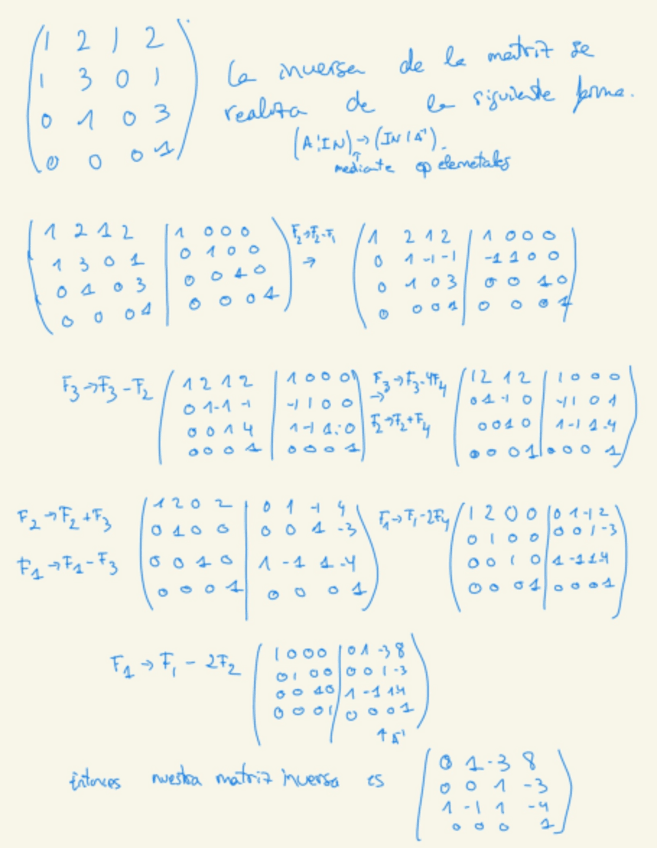 1 2 1 2
1 3 0 1
0 1 0 3
0 0 0 1
La inversa de la matriz se
realiza de la siguiente forma.
(A¦IN)→(IN¦A⁻¹).
↑
mediante op elemetales
1 2 1 2 | 1 0 0 0
1 3 0 1 | 0 1 0 0
0 1 0 3 | 0 0 1 0
0 0 0 1 | 0 0 0 1
F₂→F₂-F₁
→
1 2 1 2 | 1 0 0 0
0 1 -1 -1 | -1 1 0 0
0 1 0 3 | 0 0 1 0
0 0 0 1 | 0 0 0 1
F₃→F₃-F₂
1 2 1 2 | 1 0 0 0
0 1 -1 -1 | -1 1 0 0
0 0 1 4 | 1 -1 1 0
0 0 0 1 | 0 0 0 1
F₃→F₃-4F₄
→
F₂→F₂+F₄
1 2 1 2 | 1 0 0 0
0 1 -1 0 | -1 1 0 1
0 0 1 0 | 1 -1 1 -4
0 0 0 1 | 0 0 0 1
F₂→F₂+F₃
F₁→F₁-F₃
1 2 0 2 | 0 1 -1 4
0 1 0 0 | 0 0 1 -3
0 0 1 0 | 1 -1 1 -4
0 0 0 1 | 0 0 0 1
F₁→F₁-2F₄
1 2 0 0 | 0 1 -1 2
0 1 0 0 | 0 0 1 -3
0 0 1 0 | 1 -1 1 -4
0 0 0 1 | 0 0 0 1
F₁→F₁-2F₂
1 0 0 0 | 0 1 -3 8
0 1 0 0 | 0 0 1 -3
0 0 1 0 | 1 -1 1 -4
0 0 0 1 | 0 0 0 1
↑ A⁻¹
Entonces nuestra matriz inversa es
0 1 -3 8
0 0 1 -3
1 -1 1 -4
0 0 0 1